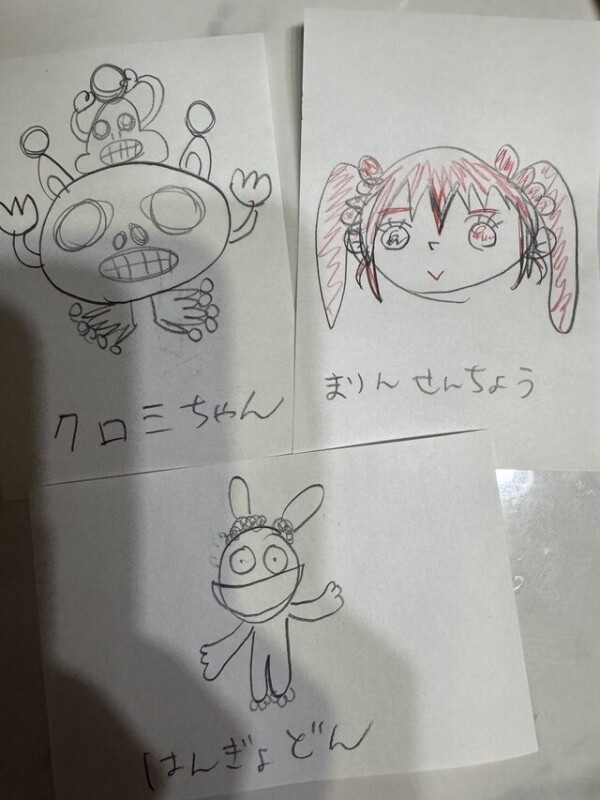 クロミちゃん
まりん せんちょう
はんぎょどん